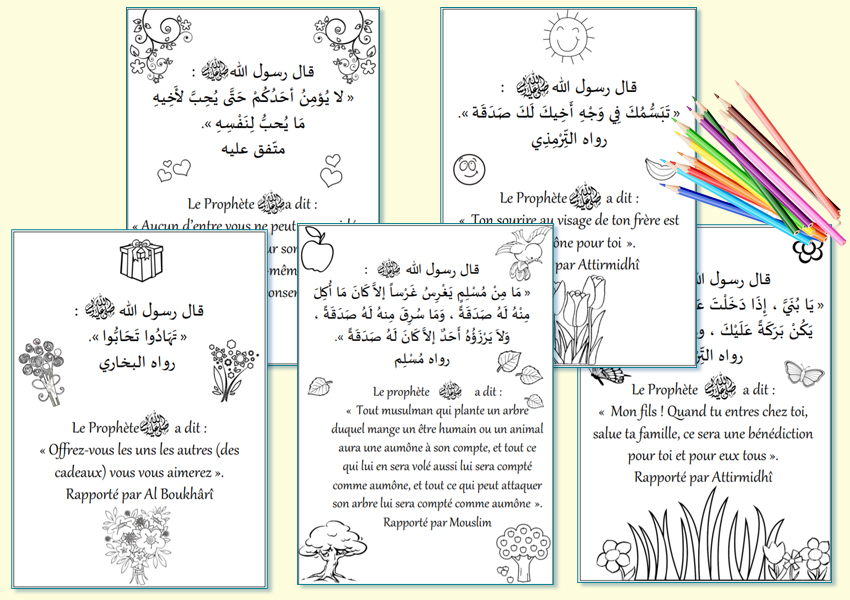 قال رسول الله ﷺ :
« لا يُؤْمِنُ أحَدُكُمْ حَتَّى يُحِبَّ لأَخِيهِ
مَا يُحبُّ لِنَفْسِهِ ».
متّفق عليه
Le Prophète ﷺ a dit :
« Aucun d'entre vous ne peut
قال رسول الله ﷺ :
« تَبَسُّمُكَ فِي وَجْهِ أَخِيكَ لَكَ صَدَقَة ».
رواه التِّرْمِذِي
Le Prophète ﷺ a dit :
« Ton sourire au visage de ton frère est
ône pour toi ».
par Attirmidhî
قال رسول الله ﷺ :
« تَهَادُوا تَحَابُّوا ».
رواه البخاري
Le Prophète ﷺ a dit :
« Offrez-vous les uns les autres (des
cadeaux) vous vous aimerez ».
Rapporté par Al Boukhârî
قال رسول الله ﷺ :
« مَا مِنْ مُسْلِمٍ يَغْرِسُ غَرْساً إلاَّ كَانَ مَا أُكِلَ
مِنْهُ لَهُ صَدَقَةً ، وَمَا سُرِقَ مِنهُ لَهُ صَدَقَةً ،
وَلاَ يَرْزَؤُهُ أَحَدٌ إلاَّ كَانَ لَهُ صَدَقَةً ».
رواه مُسْلِم
Le prophète ﷺ a dit :
« Tout musulman qui plante un arbre
duquel mange un être humain ou un animal
aura une aumône à son compte, et tout ce
qui lui en sera volé aussi lui sera compté
comme aumône, et tout ce qui peut attaquer
son arbre lui sera compté comme aumône ».
Rapporté par Mouslim
قال رسول الله
« يَا بُنَيَّ ، إِذَا دَخَلْتَ
يَكُنْ بَرَكَةً عَلَيْكَ ،
رواه
Le Prophète ﷺ a dit :
« Mon fils ! Quand tu entres chez toi,
salue ta famille, ce sera une bénédiction
pour toi et pour eux tous ».
Rapporté par Attirmidhî